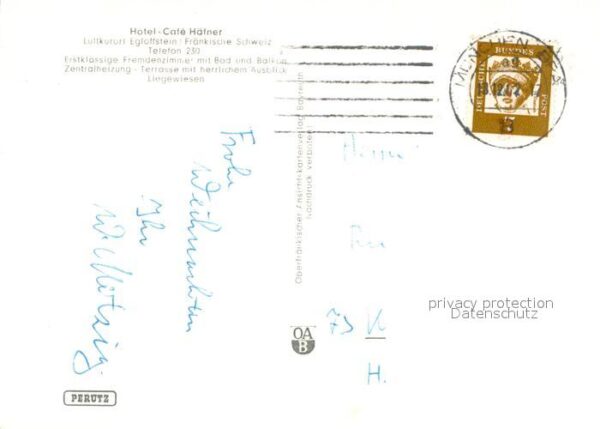 Hotel-Café Häfner
Luftkurort Egloffstein · Fränkische Schweiz
Telefon 230
Erstklassige Fremdenzimmer mit Bad und Balkon
Zentralheizung - Terrasse mit herrlichem Ausblick
Liegewiesen
DEUTSCHE BUNDES POST
Frohe
Weihnachten
Ihr
Oberfränkischer Ansichtskartenverlag Bayreuth
Nachdruck verboten!
privacy protection
Datenschutz
OA
B
H.
PERUTZ